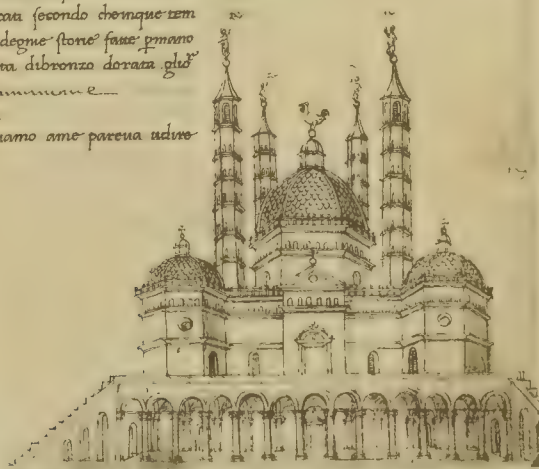 secondo chomque tem
degnie storie fatte pmano
ta dibronzo dorata glio
iamo ame pareua udire